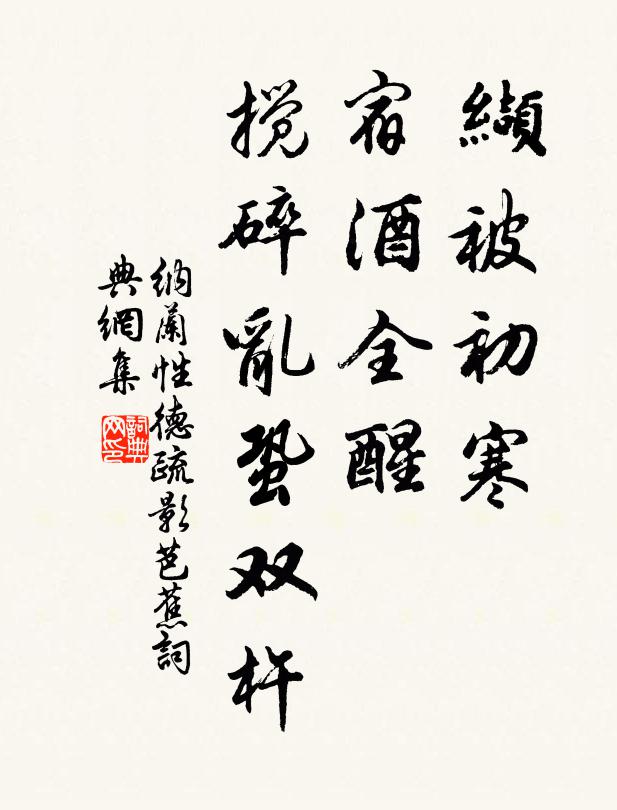 纈被初寒
宿酒全醒
搅碎亂蛩双杵
納蘭性德疏影芭蕉詞
典網集
詞典网印